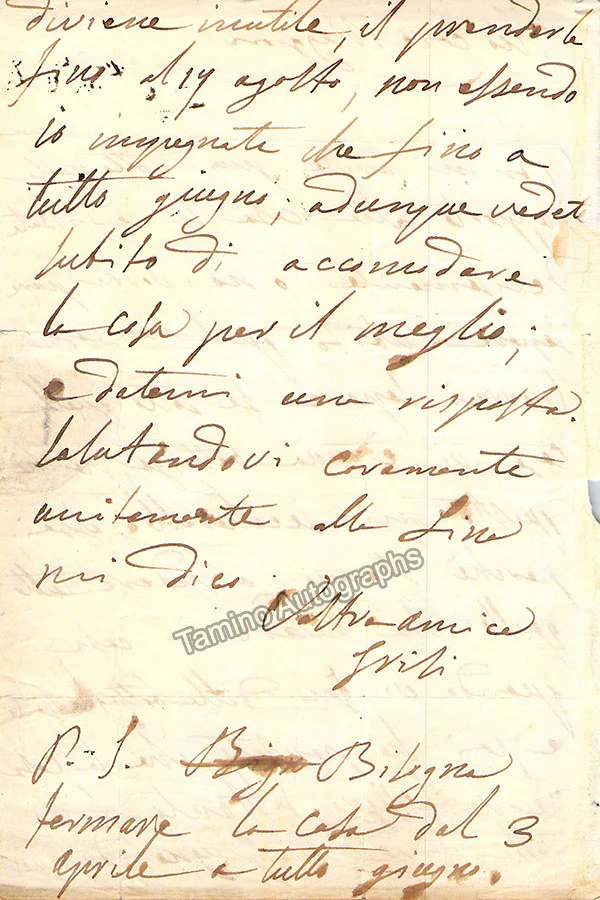 diviene inutile, il prenderla
fino al 19 agosto, non essendo
io impegnata che fino a
tutto giugno; adunque vedete
subito di accomodare
la cosa per il meglio;
e datemi una risposta.
Salutandovi caramente
unitamente alla Lina
mi dico.
Vostra amica
Grisi
P. S. Bisogna
fermare la casa dal 3
aprile a tutto giugno.
Tamino Autographs